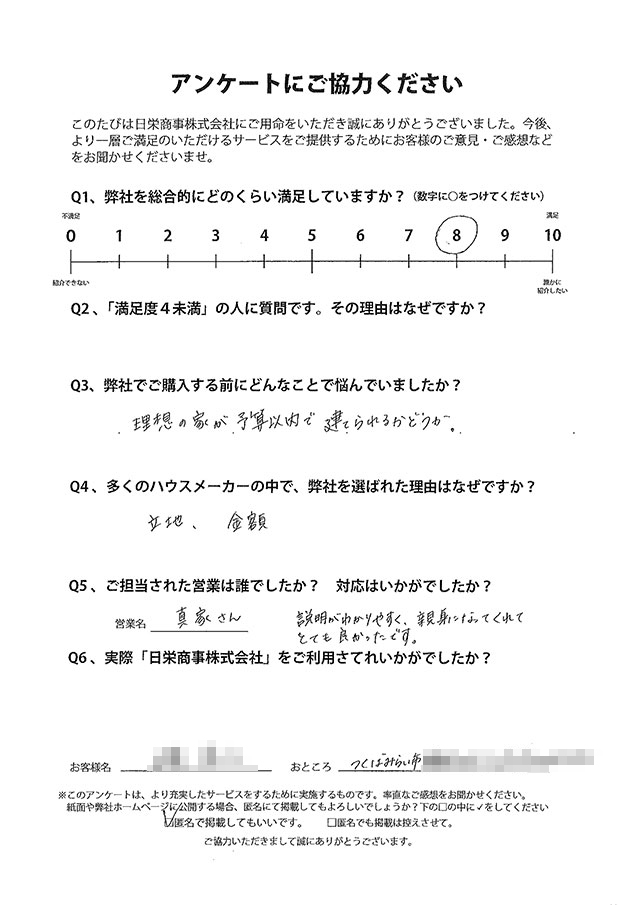 アンケートにご協力ください
このたびは日栄商事株式会社にご用命をいただき誠にありがとうございました。今後、
より一層ご満足のいただけるサービスをご提供するためにお客様のご意見・ご感想など
をお聞かせくださいませ。
Q1、弊社を総合的にどのくらい満足していますか？（数字に○をつけてください）
不満足 満足
0 1 2 3 4 5 6 7 8 9 10
紹介できない 誰かに
紹介したい
Q2、「満足度４未満」の人に質問です。その理由はなぜですか？
Q3、弊社でご購入する前にどんなことで悩んでいましたか？
理想の家が予算以内で建てられるかどうか。
Q4、多くのハウスメーカーの中で、弊社を選ばれた理由はなぜですか？
立地、 金額
Q5、ご担当された営業は誰でしたか？ 対応はいかがでしたか？
営業名 真家さん 説明がわかりやすく、親身になってくれて
とても良かったです。
Q6、実際「日栄商事株式会社」をご利用さてれいかがでしたか？
お客様名 おところ つくばみらい市
※このアンケートは、より充実したサービスをするために実施するものです。率直なご感想をお聞かせください。
紙面や弊社ホームページに公開する場合、匿名にて掲載してもよろしいでしょうか？下の□の中に✓をしてください
☑匿名で掲載してもいいです。 □匿名でも掲載は控えさせて。
ご協力いただきまして誠にありがとうございます。